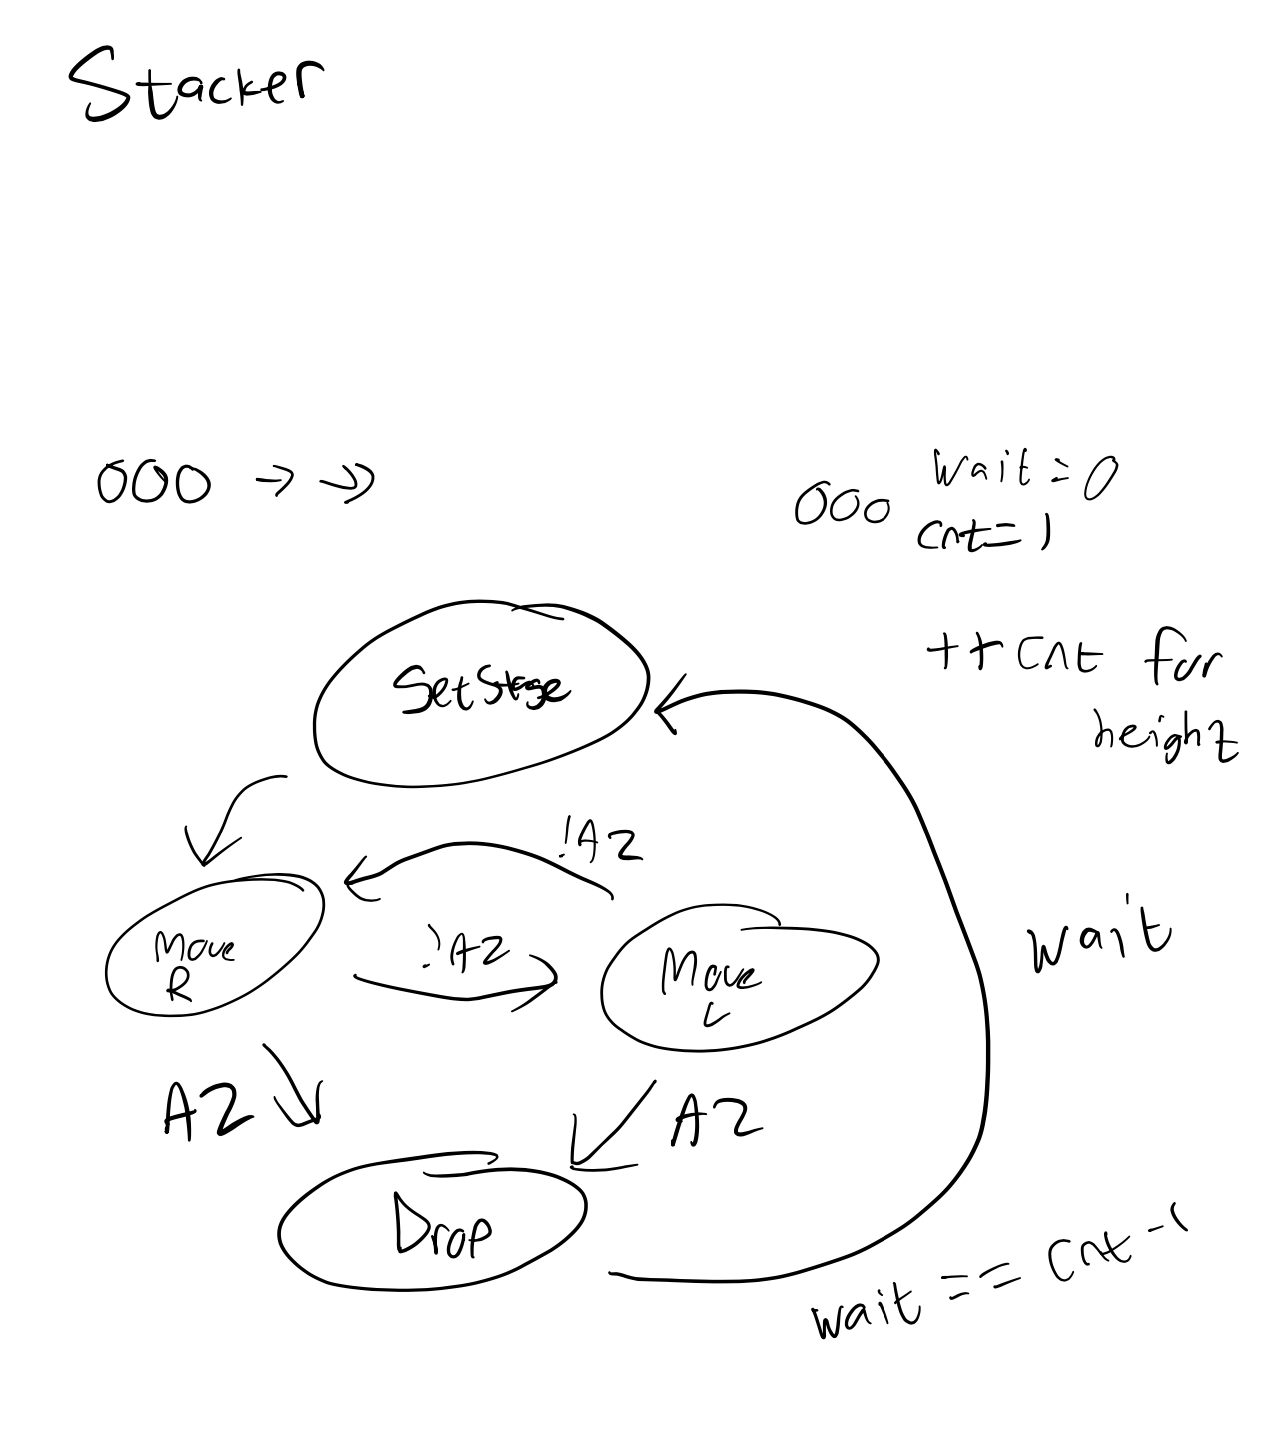 Stacker
000 → →>
000 wait = 0
cnt = 1
++cnt for
height
SetStage
!A2
Move
R
!A2
Move
L
wait
A2
A2
Drop
wait == cnt - 1